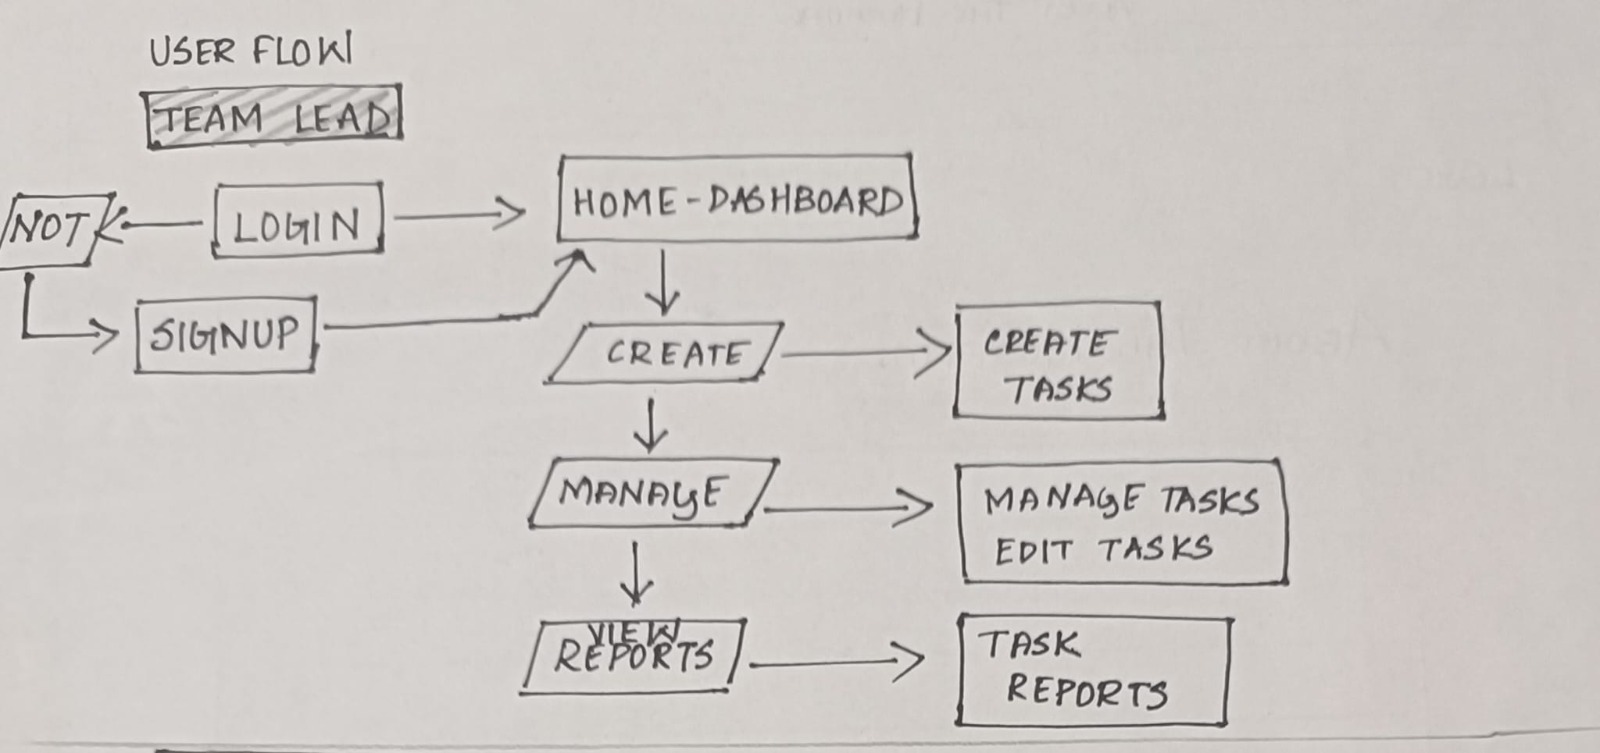 USER FLOW
TEAM LEAD
NOT
LOGIN
HOME-DASHBOARD
SIGNUP
CREATE
CREATE
TASKS
MANAGE
MANAGE TASKS
EDIT TASKS
VIEW
REPORTS
TASK
REPORTS